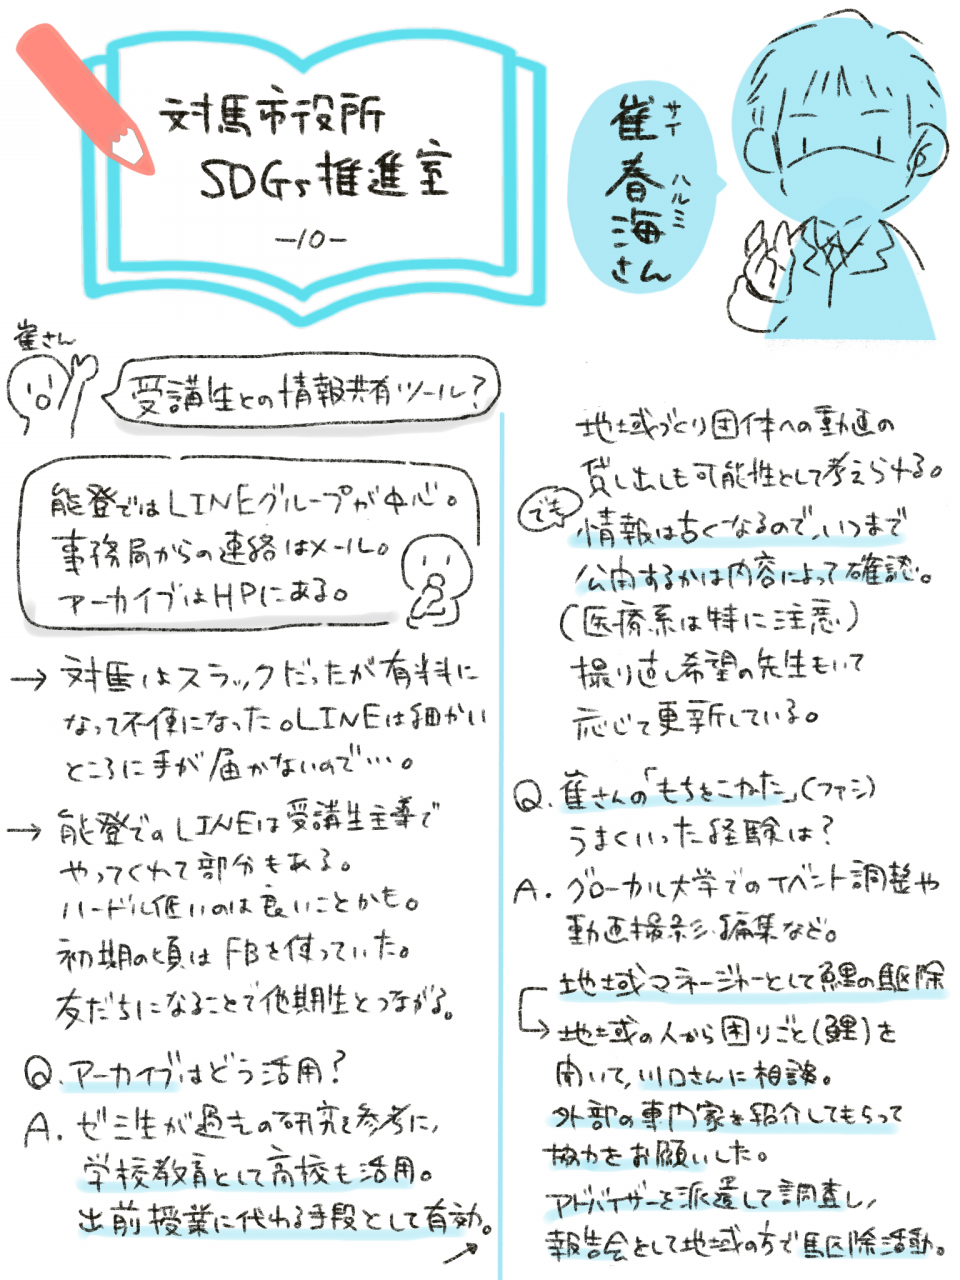 対馬市役所
SDGs推進室
-10-
崔春海さん
サイ
ハルミ
崔さん
受講生との情報共有ツール?
能登ではLINEグループが中心。
事務局からの連絡はメール。
アーカイブはHPにある。
→ 対馬はスラックだったが有料に
なって不便になった。LINEは細かい
ところに手が届かないので…。
→ 能登でのLINEは受講生主導で
やってくれて部分もある。
ハードル低いのは良いことかも。
初期の頃はFBを使っていた。
友だちになることで他期生とつながる。
Q. アーカイブはどう活用?
A. ゼミ生が過去の研究を参考に、
学校教育として高校も活用。
出前授業に代わる手段として有効。
地域づくり団体への動画の
貸し出しも可能性として考えられる。
でも
情報は古くなるので、いつまで
公開するかは内容によって確認。
(医療系は特に注意)
撮り直し希望の先生もいて
応じて更新している。
Q. 崔さんの「もちをこねた」(ファシ)
うまくいった経験は?
A. グローカル大学でのイベント調整や
動画撮影、編集など。
地域マネージャーとして鯉の駆除
→地域の人から困りごと(鯉)を
聞いて、川口さんに相談。
外部の専門家を紹介してもらって
協力をお願いした。
アドバイザーを派遣して調査し、
報告会として地域の方で駆除活動。